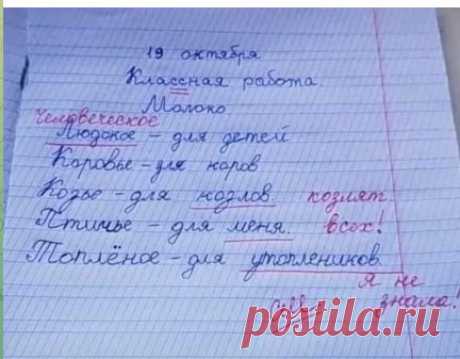 19 октября
Классная работа
Молоко
человеческое
Людокое - для детей
Каровье - для коров
Козье - для козлов козлят.
Птичье - для меня. всех!
Топлёное - для утоплеников.
я не
знала!
postila.ru